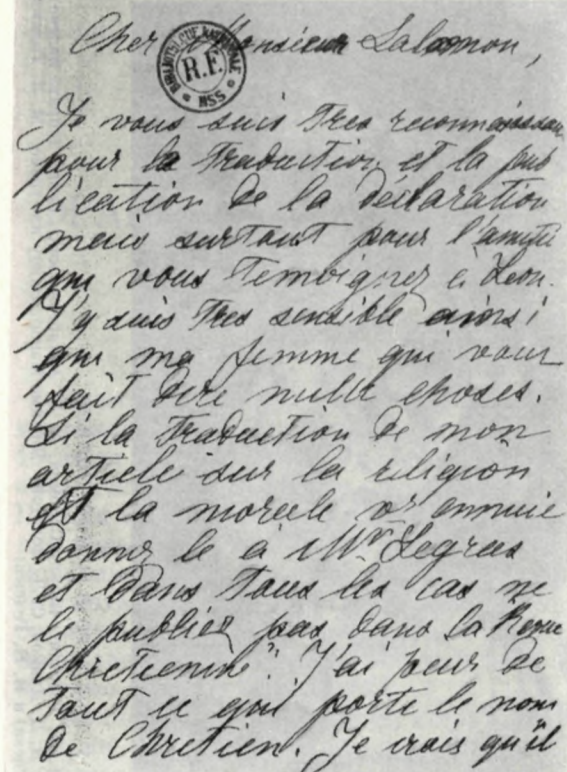 Cher Monsieur Salomon,
BIBLIOTHÈQUE NATIONALE
R.F.
MSS
Je vous suis très reconnaissant
pour la traduction et la pub
lication de la déclaration
mais surtout pour l'amitié
que vous temoignez à Léon.
J'y suis très sensible ainsi
que ma femme qui vous
fait dire mille choses.
Si la traduction de mon
article sur la religion
et la morale vs ennuie
donnez le à Mr Legras
et dans tous les cas ne
le publiez pas dans la Revue
Chretienne". J'ai peur de
tout ce qui porte le nom
de Chretien. Je crois qu'il